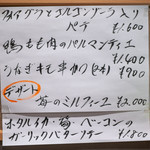 フォアグラとゴルゴンゾーラ入り
パテ ¥1,600
鴨もも肉のパルマンティエ
¥1,400
うなぎキモ串かつ(2本) ¥900
デザート
苺のミルフィーユ ¥2,000
ホタルイカ・苺・ベーコンの
ガーリックバターソテー ¥1,800